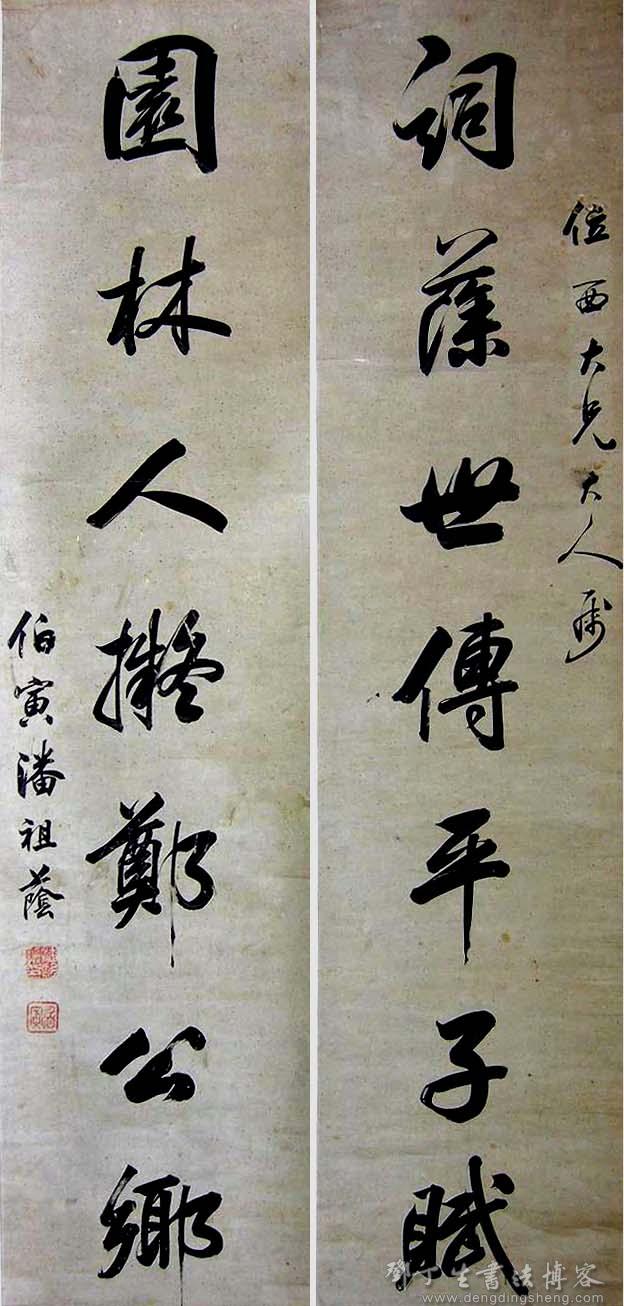 詞藻世傳平子賦
西大兄大人屬
園林人擬鄭公鄉
伯寅潘祖蔭
鄧丁生書法博客
www.dengdingsheng.com